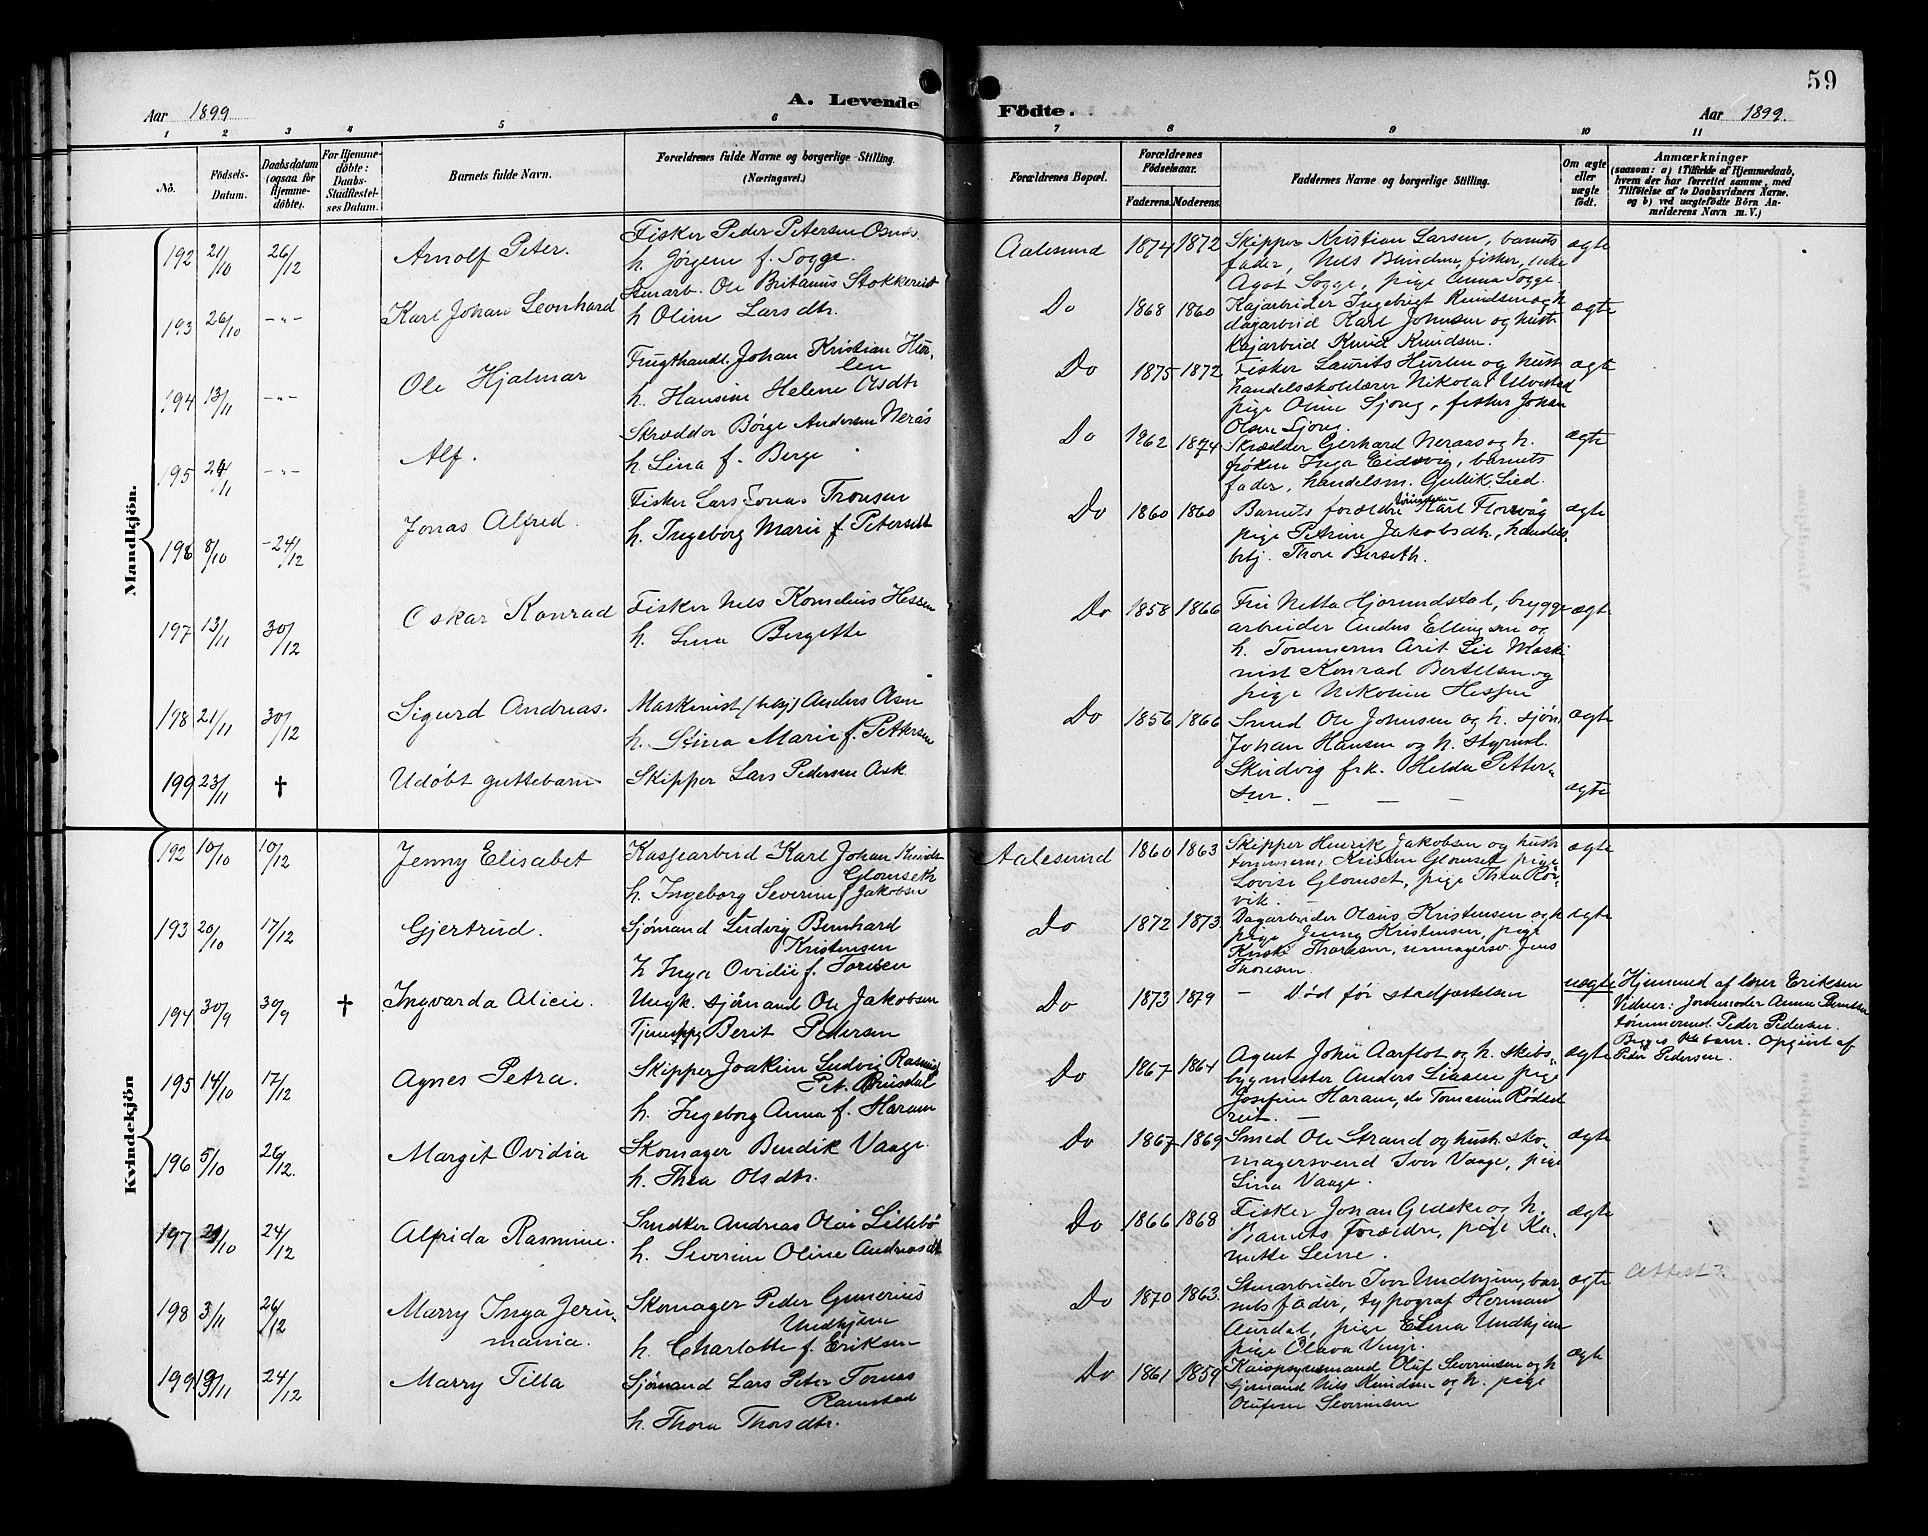 59
Aar 1899
A. Levende Fødte.
Aar 1899.
1 2 3 4 5 6 7 8 9 10 11
No.
Födsels-Datum.
Daabsdatum (ogsaa for Hjemmedöbte).
For Hjemmedöbte: Daabs-Stadfæstelses Datum.
Barnets fulde Navn.
Forældrenes fulde Navne og borgerlige Stilling. (Næringsvei.)
Forældrenes Bopæl.
Forældrenes Födselsaar.
Faderens. Moderens.
Faddernes Navne og borgerlige Stilling.
Om ægte eller uægte födt.
Anmærkninger
(saasom: a) i Tilfælde af Hjemmedaab, hvem der har forrettet samme, med Tilföielse af to Daabsvidners Navne, og b) ved uægtefödte Börn Anmelderens Navn m. V.)
Mandkjön.
192 21/10 26/12 Arnolf Peter. Fisker Peder Petersen
h. Jörgine f. Sogge.
Aalesund 1874 1872 Skipper Kristian Larsen, barnets ægte
fader, Nils fisker,
Agot Sogge, pige Anna Sogge.
193 26/10 -"- Karl Johan Leonhard Stenarb. Ole Britanus Stokkereit
h Oline Larsdtr.
Do 1868 1860 Kajarbeider Ingebrigt Knudsen og h ægte
dagarbeid Karl Johnsen og hust
Kajarbeid Knud Knudsen.
194 13/11 -"- Ole Hjalmar Frugthandl. Johan Kristian Hurlen
h. Hansine Helene Olsdtr
Do 1875 1872 Fisker Laurits Hurlen og hust ægte
handelsskolelærer Nikolai Ulvestad
pige Oline Sjong, fisker Johan
Olsen Sjong.
195 24/11 -"- Alf. Skrædder Börge Andersen Nerås
h. Lina f. Berge
Do 1862 1874 Skrædder Gerhard Neraas og h. ægte
fröken Inga Eidsvig, barnets
fader, handelsm. Gullik Lied.
196 8/10 -24/12 Jonas Alfred. Fisker Lars Jonas Tronsen
h. Ingeborg Marie f Petersdt
Do 1860 1860 Barnets forældre Karl Florvåg ægte
pige Petrine Jakobsdtr., handels-
betj. Thore Berseth.
197 13/11 30/12 Oskar Konrad Fisker Nils Kornelius Hessen
h. Lina Bergette
Do 1858 1866 Fru Netta Hjorundstad, brygge- ægte
arbeider Anders Ellingsen og
h. Tommerm Arit Lie Maski
nist Konrad Bertelsen og
pige Nikoline Hessen
198 21/11 30/12 Sigurd Andreas. Maskinist Anders Åsen
h. Stina Marie f. Pettersen
Do 1856 1866 Smed Ole Johnsen og h. sjöm. ægte
Johan Hansen og h. styrmd.
Skudvig frk. Hilda Petter-
sen.
199 23/11 † Udöbt guttebarn Skipper Lars Pedersen Ask
— — — ægte
Kvindekjön
192 10/10 10/12 Jenny Elisabet Kassearbeid Karl Johan Knudsen
Glomseth
h. Ingeborg Severine f Jakobsen
Aalesund 1860 1863 Skipper Henrik Jakobsen og hust ægte
tommerm. Kristen Glomset, pige
Lovise Glomset, pige Thea Rör-
vik.
193 20/10 17/12 Gjertrud. Sjömand Ludvig Bernhard
Kristensen
h Inga Ovidie f. Toresen
Do 1872 1873 Dagarbeider Olaus Kristensen og h ægte
pige Jenny Kristensen, pige
Thoresen, urmagersv. Jens
Thoresen.
194 30/9 30/9 † Ingvarda Alice. Ungk. sjömand Ole Jakobsen
Tjenestepg Berit Pedersen
Do 1873 1879 — Död för stadfæstelsen uægte Hjemmed af lærer Eriksen
Vidner: Jordmoder Anna
tömmermd. Peder Pedersen.
Begges 1ste barn. Opgivet af
Peder Pedersen.
195 14/10 17/12 Agnes Petra. Skipper Joakim Ludvig Rasmus
h. Ingeborg Anna f. Haram
Do 1867 1864 Agent John Aarflot og h. skibs- ægte
bygmester Anders Liaaen pige
Josefine Haram, do Tomasine Rödset
reit. —
196 5/10 26/12. Margit Ovidia Skomager Bendik Vaage.
h. Thea Olsdtr.
Do 1867 1869 Smed Ole Strand og hust. sko- ægte
magersvend Iver Vaage, pige
Lina Vaage.
197 21/10 24/12 Alfrida Rasmine. Snedker Andreas Olai Lillebö
h. Severine Oline Andreasdt
Do 1866 1868 Fisker Johan Giske og h. ægte
Barnets Forældre, pige Ka-
nutte Leine.
198 3/11 26/12 Marry Inga Jeru-
mania. Skomager Peder Gunerius
Undhjem
h. Charlotte f. Eriksen
Do 1870 1863. Stenarbeider Iver Undhjem, bar- ægte Attest?
nets fader, typograf Herman
Aurdal, pige Elina Undhjem
pige Olava Venge.
199 19/11 24/12 Marry Tilla Sjömand Lars Peter Tomas
Ramstad
h. Thora Thorsdtr.
Do 1861 1859 Oluf Severinsen og h ægte
sjömand Nils Knudsen og h. pige
Olufine Severinsen